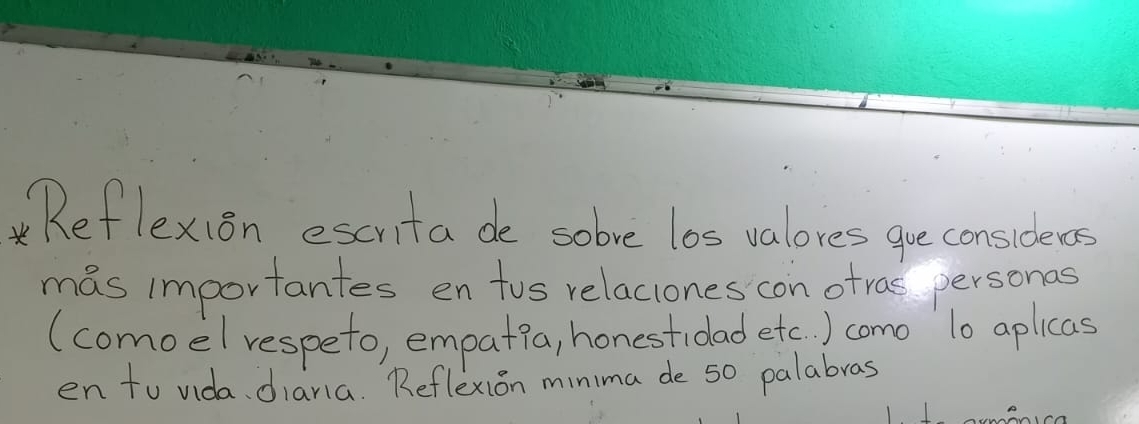 *Reflexión escrita de sobre los valores que consideras
más importantes en tus relaciones con otras personas
(como el respeto, empatía, honestidad etc..) como lo aplicas
en tu vida diaria. Reflexión minima de 50 palabras
armónica